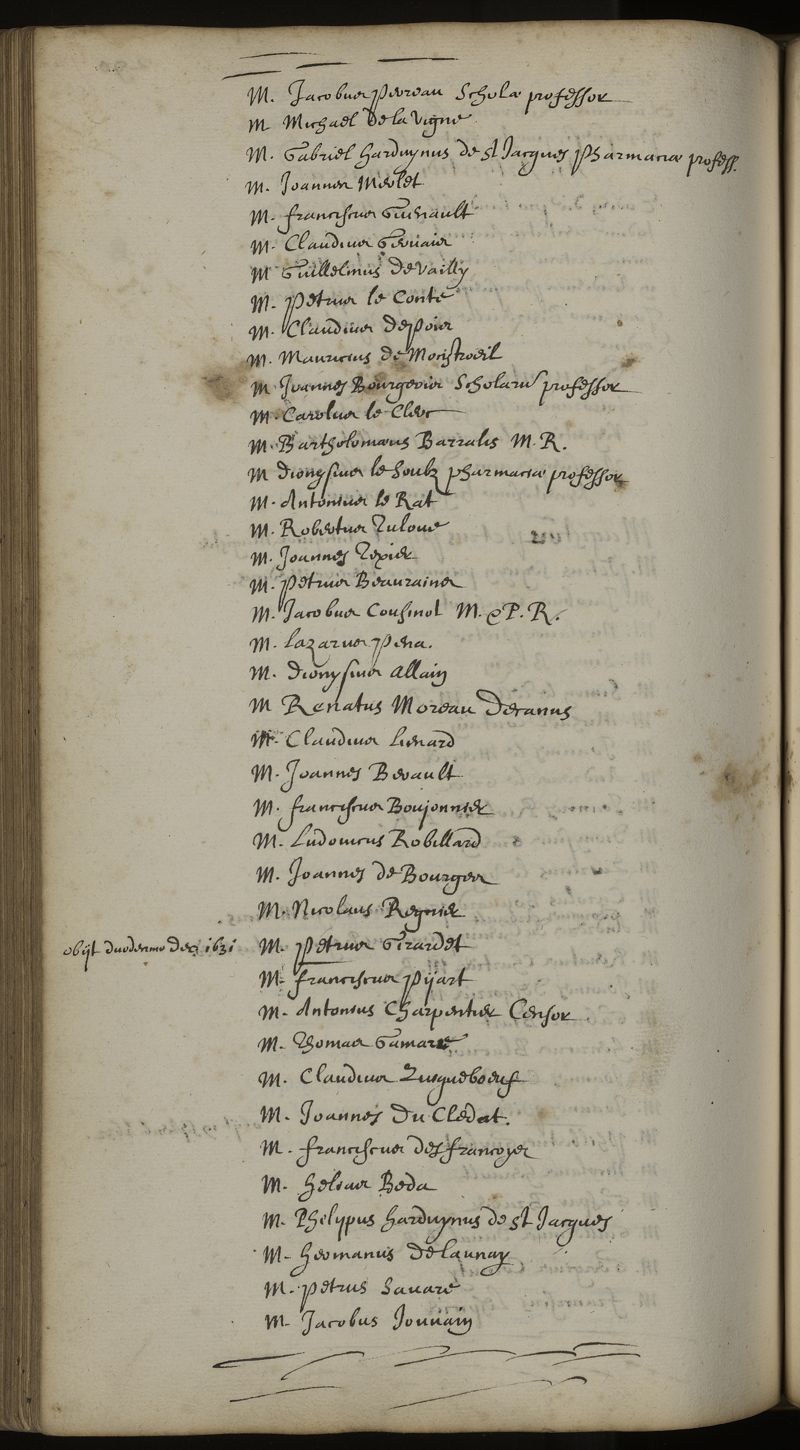 M. Jacobus Perreau Scholæ professor
M Michael De la Vigne
M. Gabriel Harduynus de st Jacques Pharmaciæ profess.
M. Joannes Merlet
M. franciscus Guenault
M. Claudius Gervais
M Guillelmus de Vailly
M. Petrus le Conte
M. Claudius De poix
M. Mauricius de Monstroeil
M Joannes Bourgeois Scholarū professor
M. Carolus le Clerc
M. Bartholomæus Barralis M. R.
M Dionysius le Soubz pharmaciæ professor
M. Antonius le Rat
M. Robertus Tuloue
M. Joannes Texier
M. Petrus Beaurains
M. Jacobus Cousinot M. & P. R.
M. Lazarus Pena.
M. Dionysius Allain
M Renatus Moreau Decanus
M. Claudius Lienard
M. Joannes Berault
M. franciscus Boujonnier
M. Ludovicus Robillard
M. Joannes de Bourges
M. Nicolaus Regnier
obijt duodecimo Dec. 1631 M. Petrus Girardet
M. franciscus Pijart
M. Antonius Charpentier Censor
M. Thomas Gamare
M. Claudius Tuequeboeuf
M. Joannes Du Cledat.
M. franciscus Desfrancoys
M. Helias Beda
M. Phelypus Harduynus de st Jacques
M. Hermanus De launay
M. Petrus Savare
M. Jacobus Jouvain